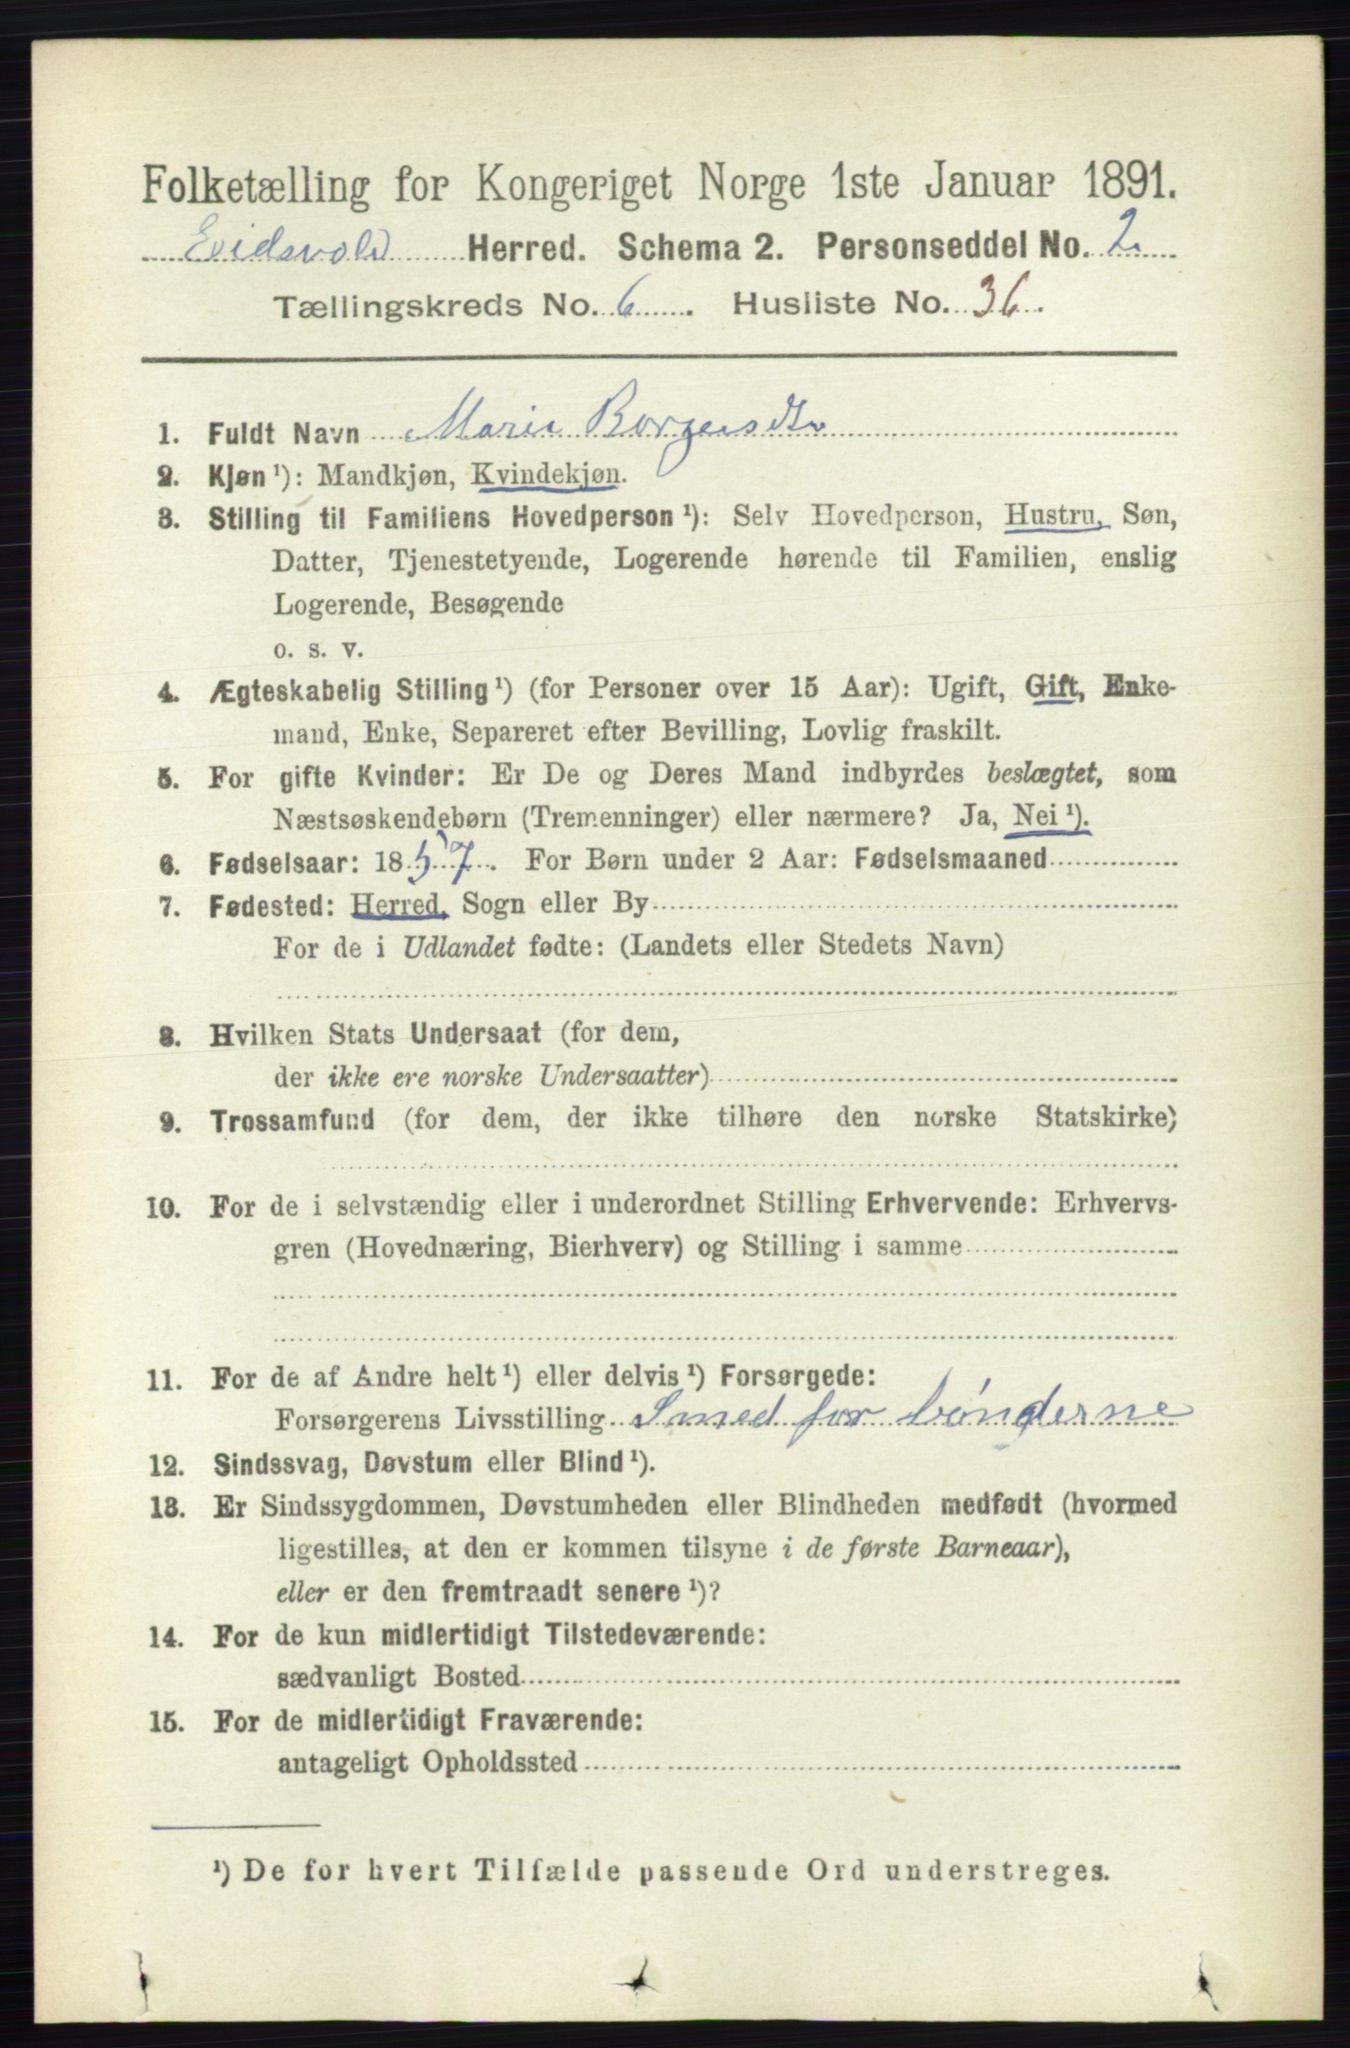 Folketælling for Kongeriget Norge 1ste Januar 1891.
Eidsvold Herred. Schema 2. Personseddel No. 2
Tællingskreds No. 6. Husliste No. 36.
1. Fuldt Navn Marie Borgersdtr
2. Kjøn ¹): Mandkjøn, Kvindekjøn.
3. Stilling til Familiens Hovedperson ¹): Selv Hovedperson, Hustru, Søn,
Datter, Tjenestetyende, Logerende hørende til Familien, enslig
Logerende, Besøgende
o. s. v.
4. Ægteskabelig Stilling ¹) (for Personer over 15 Aar): Ugift, Gift, Enke-
mand, Enke, Separeret efter Bevilling, Lovlig fraskilt.
5. For gifte Kvinder: Er De og Deres Mand indbyrdes beslægtet, som
Næstsøskendebørn (Tremenninger) eller nærmere? Ja, Nei ¹).
6. Fødselsaar: 1857. For Børn under 2 Aar: Fødselsmaaned
7. Fødested: Herred, Sogn eller By
For de i Udlandet fødte: (Landets eller Stedets Navn)
8. Hvilken Stats Undersaat (for dem,
der ikke ere norske Undersaatter)
9. Trossamfund (for dem, der ikke tilhøre den norske Statskirke)
10. For de i selvstændig eller i underordnet Stilling Erhvervende: Erhvervs-
gren (Hovednæring, Bierhverv) og Stilling i samme
11. For de af Andre helt ¹) eller delvis ¹) Forsørgede:
Forsørgerens Livsstilling Smed for bønderne
12. Sindssvag, Døvstum eller Blind ¹).
13. Er Sindssygdommen, Døvstumheden eller Blindheden medfødt (hvormed
ligestilles, at den er kommen tilsyne i de første Barneaar),
eller er den fremtraadt senere ¹)?
14. For de kun midlertidigt Tilstedeværende:
sædvanligt Bosted
15. For de midlertidigt Fraværende:
antageligt Opholdssted
¹) De for hvert Tilfælde passende Ord understreges.